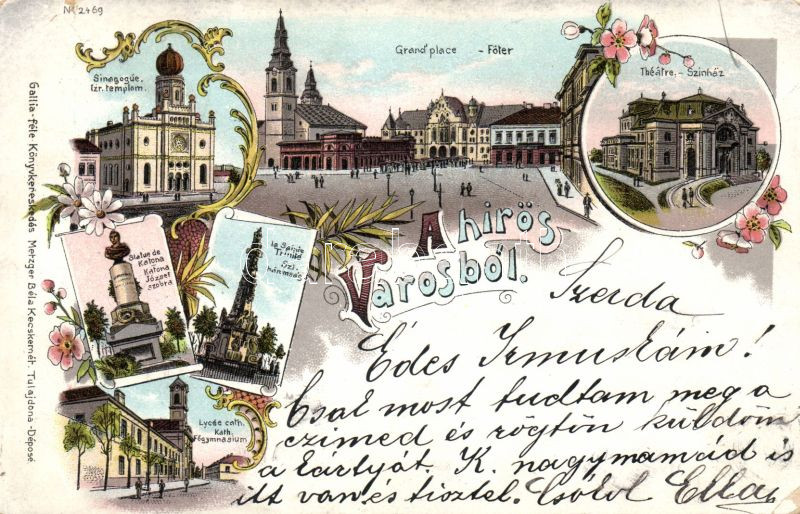 Nr. 2469
Sinagogue.
Izr. templom.
Grand' place - Főter
Théâtre. - Szinház
Statue de
Katona
Katona
József
szobra
la Sainte
Trinité
Szt.
háromság
Lycée cath.
Kath.
Főgymnásium
A hirös
Városból.
Gallia-féle Könyvkereskedés Metzger Béla Kecskemét. Tulajdona -Déposé
Szerda
Édes Irmuskám!
Csal most tudtam meg a
czimed és rögtön küldöm
a kártyát. K. nagymamád is
itt van és tisztel. Csókol Ella